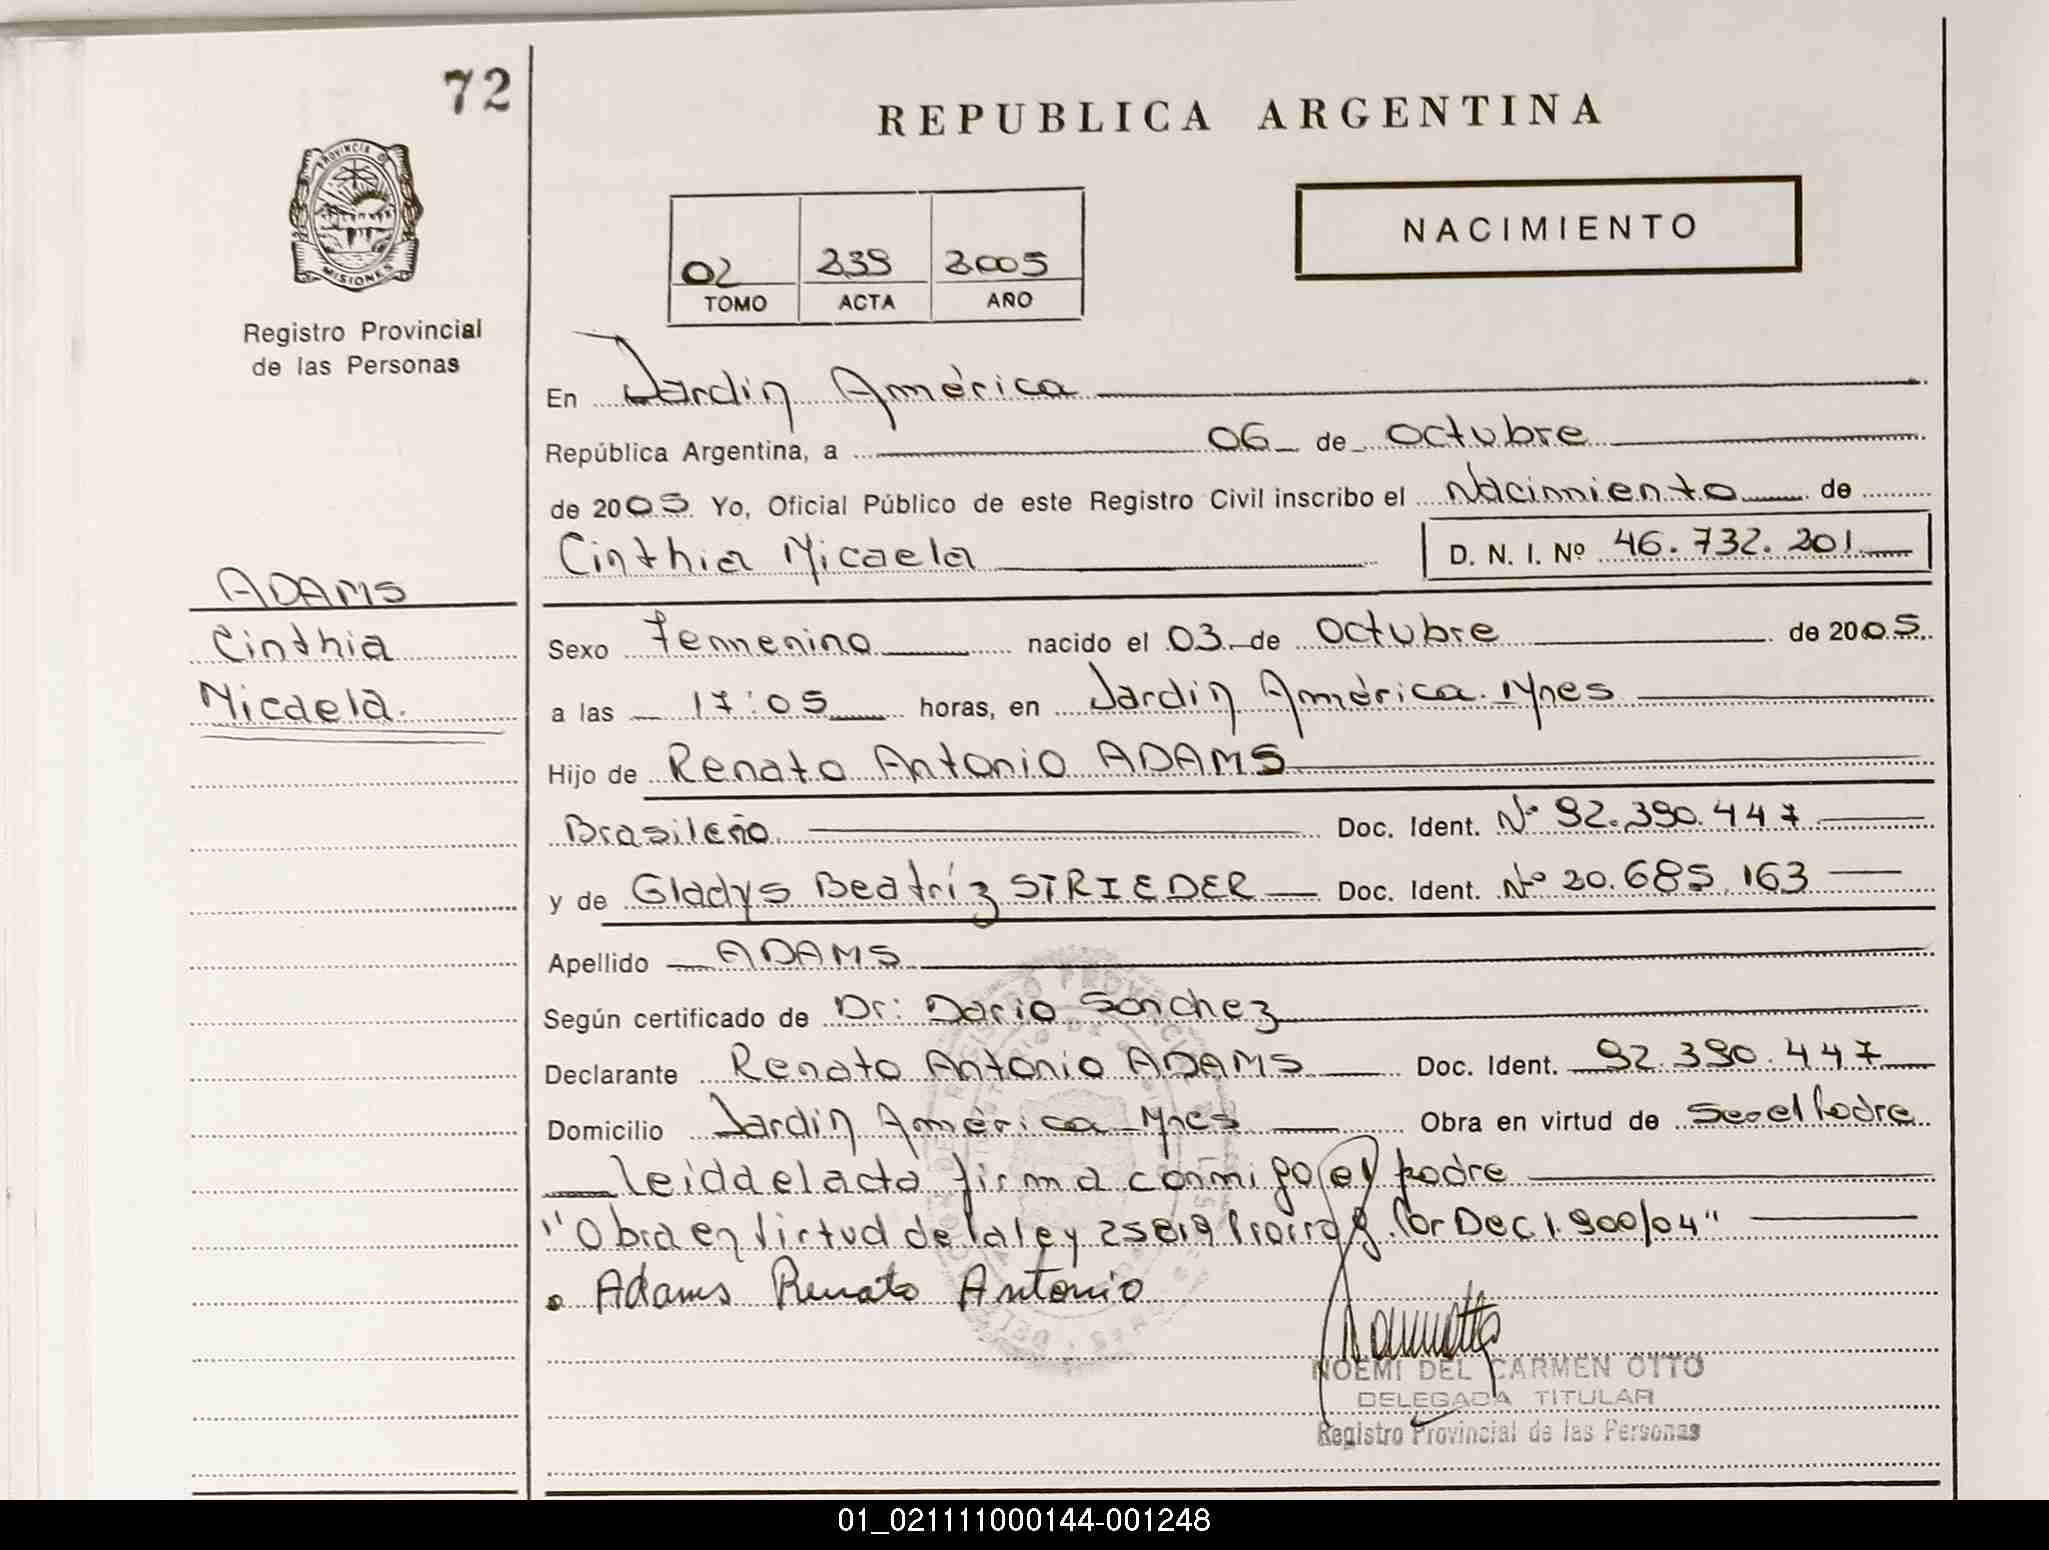 72
PROVINCIA D
MISIONES
Registro Provincial
de las Personas
REPUBLICA ARGENTINA
NACIMIENTO
02 239 2005
TOMO ACTA AÑO
En Jardín América
República Argentina, a 06 de Octubre
de 2005 Yo, Oficial Público de este Registro Civil inscribo el Nacimiento de
Cinthia Micaela D. N. I. Nº 46.732.201
ADAMS
Cinthia
Micaela.
Sexo Femenino nacido el 03 de Octubre de 2005
a las 17:05 horas, en Jardín América. Mnes
Hijo de Renato Antonio ADAMS
Brasileño Doc. Ident. Nº 92.390.447
y de Gladys Beatríz STRIEDER Doc. Ident. Nº 20.685.163
Apellido ADAMS
Según certificado de Dr: Dario Sanchez
Declarante Renato Antonio ADAMS Doc. Ident. 92.390.447
Domicilio Jardín América Mnes Obra en virtud de Ser el Padre
leida el acta firma conmigo el padre
"Obra en Virtud de la ley 25819 Prorrog. Por Dec 1.900/04"
Adams Renato Antonio
NOEMI DEL CARMEN OTTO
DELEGADA TITULAR
Registro Provincial de las Personas
01_021111000144-001248